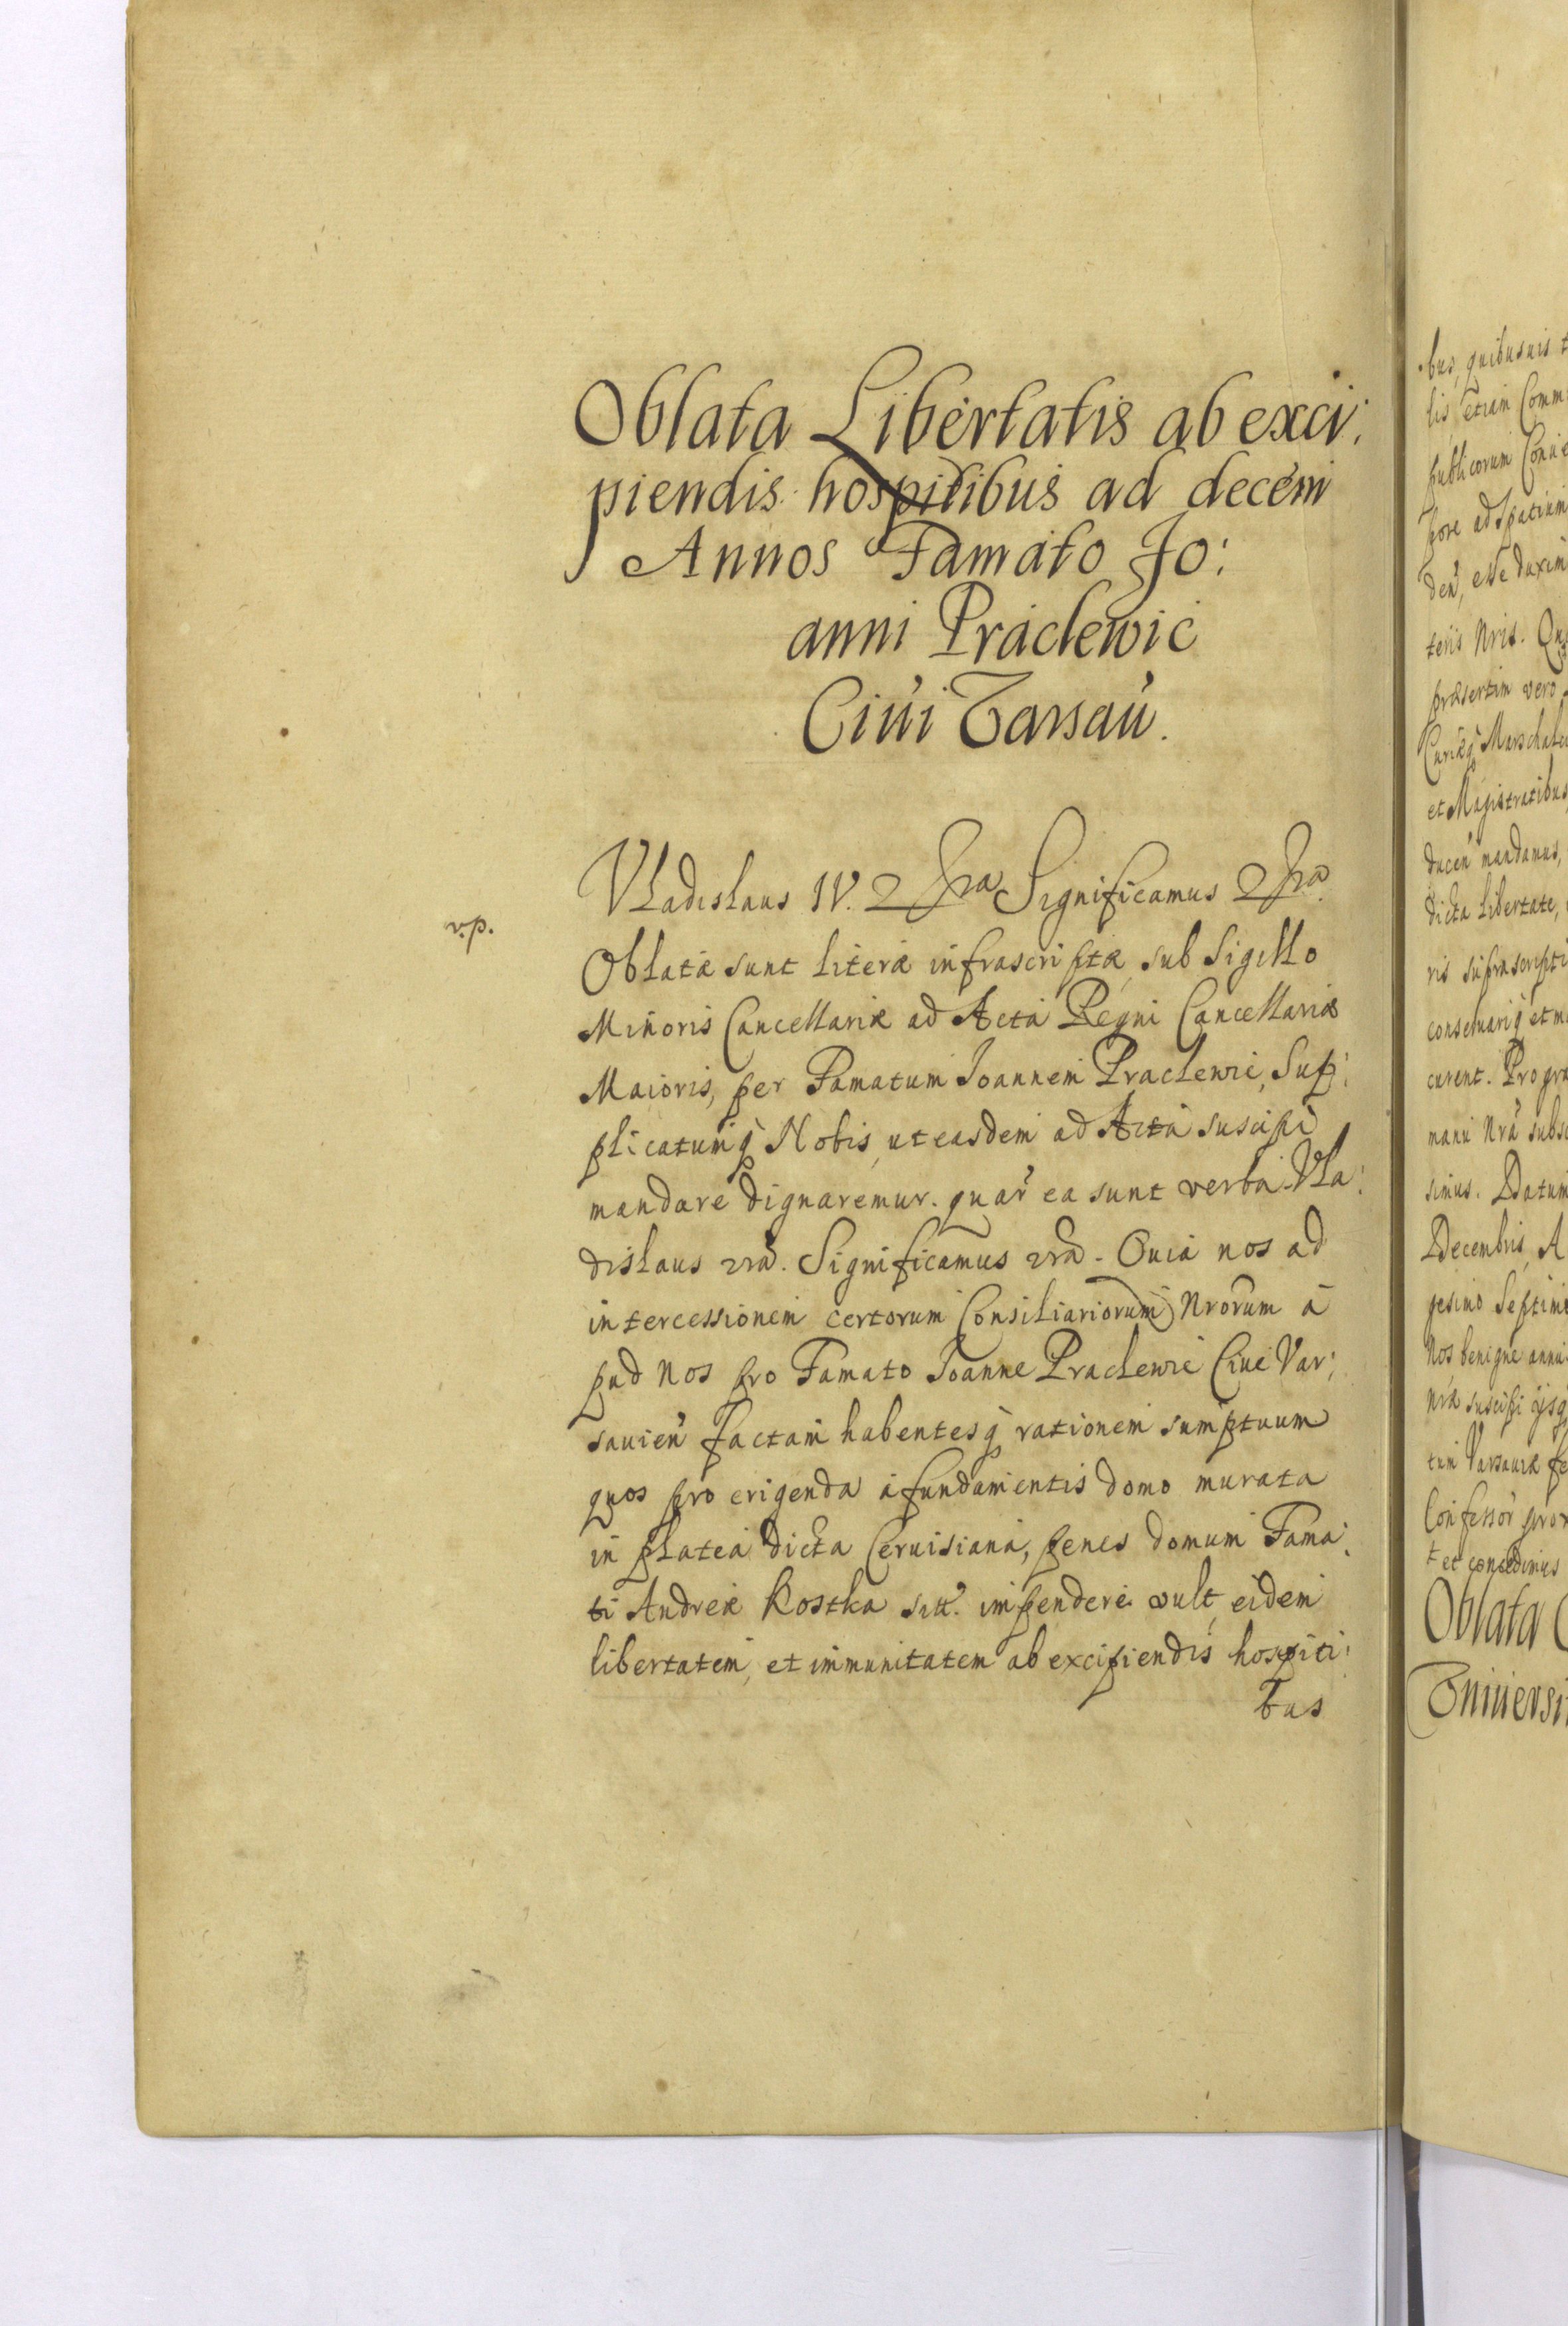 Oblata Libertatis ab exci:
piendis hospitibus ad decem
Annos Famato Jo:
anni Praclewic
Ciui Varsaú.
Vladislaus IV. Significamus
Oblatæ sunt literæ infrascriptæ sub Sigillo
Minoris Cancellariæ ad Acta Regni Cancellariæ
Maioris, per Famatum Joannem Praclewic, Sup:
plicatumq Nobis, ut easdem ad Acta suscipi
mandare dignaremur. quar̃ ea sunt verba. Vla:
dislaus Significamus Quia nos ad
intercessionem certorum Consiliariorum Nrorum a
pud Nos pro Famato Joanne Praclewic Ciue Var:
sauieñ factam habentesq rationem sumptuum
quos pro erigenda a fundamentis domo murata
in platea dicta Ceruisiana, penes domum Fama:
ti Andreæ Kostka sitt. impendere vult, eidem
libertatem, et immunitatem ab excipiendis hospiti:
bus
bus, quibusuis
lis, etiam Comm
publicorum
pore ad spatium
deñ, esse duxim
teris Nris.
præsertim vero
Curiæq Marschal
et Magistratibus
duceñ mandamus,
dicta libertate,
ris suprascripti
conseruariq et
curent. Pro
manu Nrâ subs
simus. Datum
Decembris, A
gesimo Septim
Nos benigne annu
nrâ suscipi
tum Varsauiæ
Confessor
et concedimus
Oblata
Vniuersi